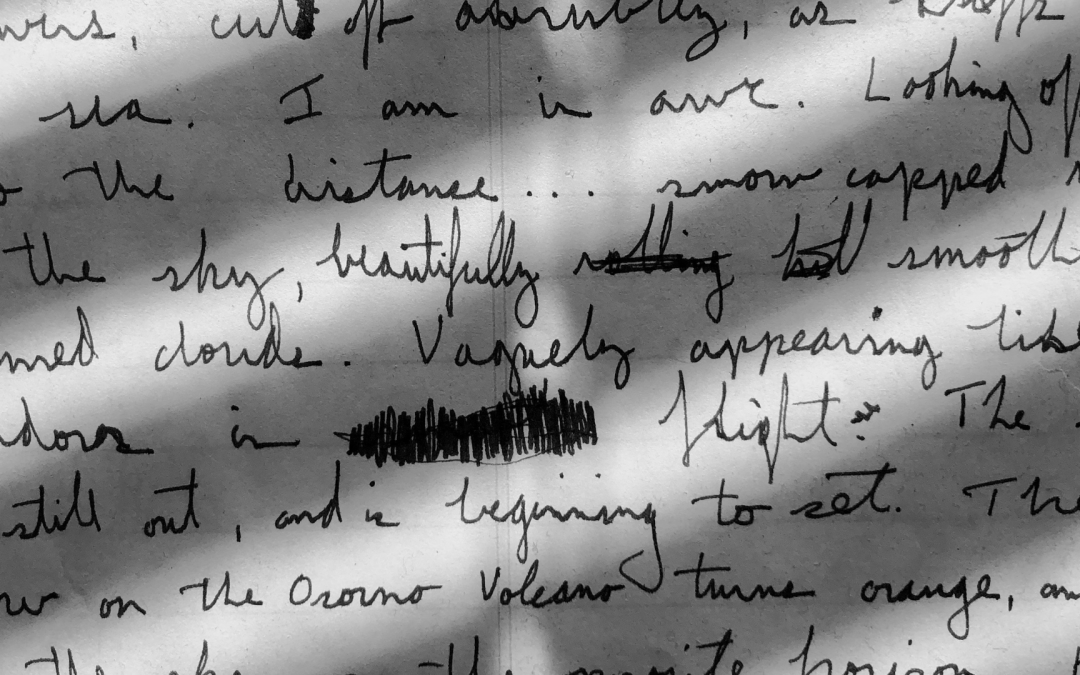 cut off assembly, as
sea. I am in awe. Looking of
the distance... snow capped
the sky, beautifully rolling but smooth
med clouds. Vaguely appearing like
dors in flight. The
still out, and is beginning to set. The
on the Osorno Volcano turns orange, an
the sky the opposite horizon